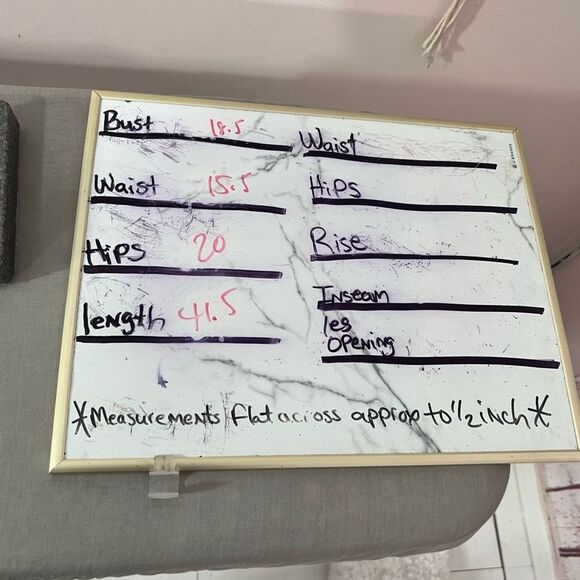 Bust 18.5
Waist 15.5
Hips 20
length 41.5
Waist
Hips
Rise
Inseam
leg
Opening
*Measurements flat across approx to 1/2 inch*